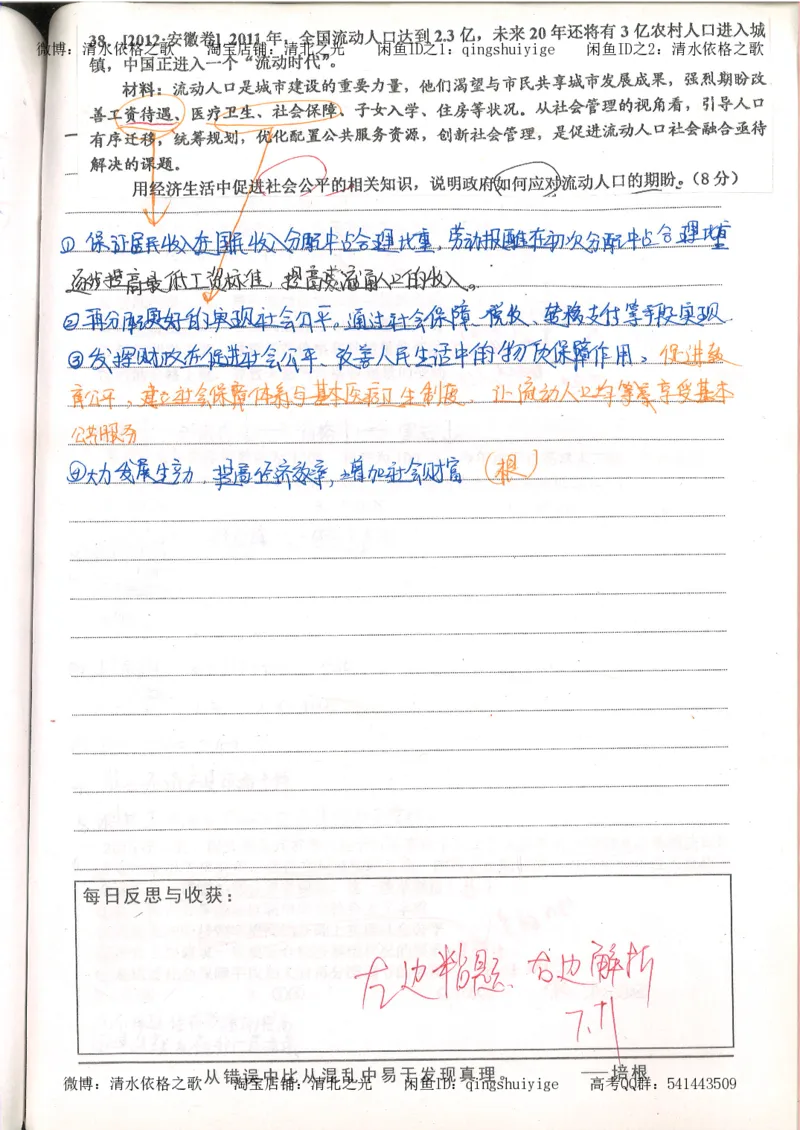 38. [2012·安徽卷] 2011 年，全国流动人口达到 2.3 亿，未来 20 年还将有 3 亿农村人口进入城
微博：清水依格之歌 淘宝店铺：清北之光 闲鱼ID之1：qingshuiyige 闲鱼ID之2：清水依格之歌
镇，中国正进入一个“流动时代”。
材料：流动人口是城市建设的重要力量，他们渴望与市民共享城市发展成果，强烈期盼改
善工资待遇、医疗卫生、社会保障、子女入学、住房等状况。从社会管理的视角看，引导人口
有序迁移，统筹规划，优化配置公共服务资源，创新社会管理，是促进流动人口社会融合亟待
解决的课题。
用经济生活中促进社会公平的相关知识，说明政府如何应对流动人口的期盼。（8 分）
① 保证居民收入在国民收入分配中占合理比重，劳动报酬在初次分配中占合理比重
逐步提高最低工资标准，提高流动人口的收入。
②再分配更好的实现社会公平。通过社会保障、税收、转移支付等手段实现
③发挥财政在促进社会公平、改善人民生活中的物质保障作用、促进教
育公平，建立社会保障体系与基本医疗卫生制度，让流动人口均等享受基本
公共服务
④大力发展生产力，提高经济效率，增加社会财富（根）
每日反思与收获：
左边粘题、右边解析
7.
从错误中比从混乱中易于发现真理。 ——培根
微博：清水依格之歌 淘宝店铺：清北之光 闲鱼ID：qingshuiyige 高考QQ群：541443509